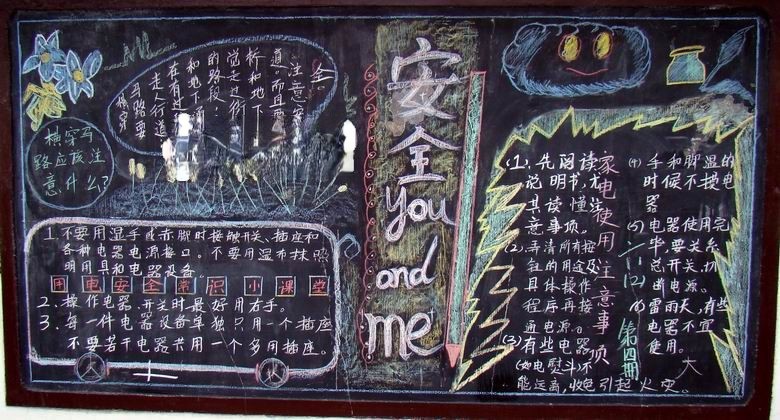 横穿马
路应该注
意什么?
横穿
马路要
走人行道
在有过
和地下
的路段,
觉走过街
桥和地下
道。而且要
注意安
全
安全
you
and
me
1、不要用湿手或赤脚时接触开关、插座和
各种电器电源接口。不要用湿布抹照
明用具和电器设备
用电安全常识小课堂
2、操作电器开关时最好用右手。
3、每一件电器设备单独只用一个插座
不要若干电器共用一个多用插座。
火
火
家电使用注意事项
(1)、先阅读
说明书,尤
其读懂注
意事项。
(2)、弄清所有按
钮的用途及
具体操作
程序再接
通电源。
(3)有些电器
(如电熨斗)不
能远离,收 引起火灾。
(4) 手和脚湿的
时候不摸电
器
(5)电器使用完
毕,要关系
总开关,切
断电源。
(6)雷雨天,有些
电器不宜
使用。
第四期
大